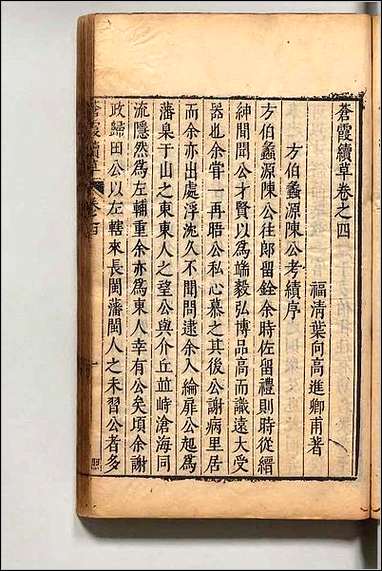 蒼霞續草卷之四
福清葉向高進卿甫著
方伯蠡源陳公考績序
方伯蠡源陳公往郎留銓余時佐留禮則時從縉
紳間聞公才賢以為端毅弘博品高而識遠大受
器也余嘗一再晤公私心慕之其後公謝病里居
而余亦出處浮沈久不聞問逮余入綸扉公起為
藩臬于山之東東人之望公與介丘並峙滄海同
流隱然為左輔重余亦為東人幸有公矣頃余謝
政歸田公以左轄來長閩藩閩人之未習公者多
蒼霞續草
卷之四
一